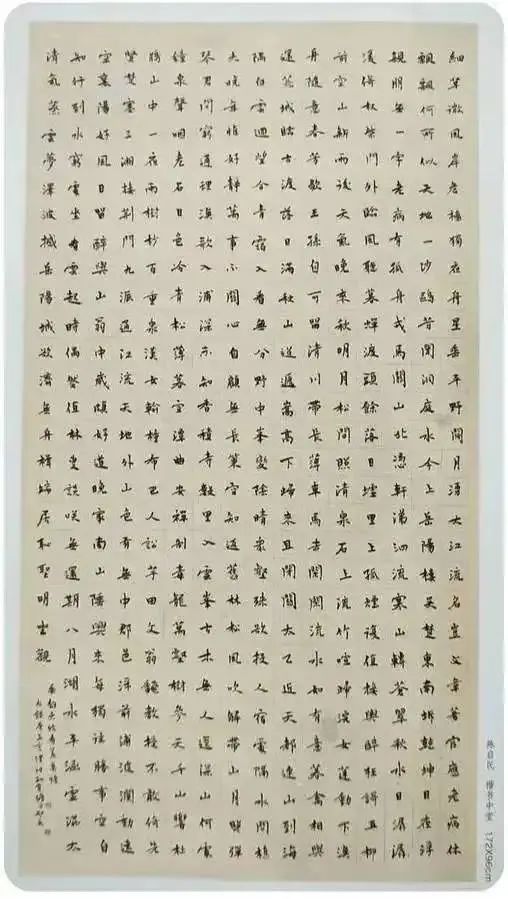 細草微風岸危檣獨夜舟星垂平野闊月湧大江流名豈文章著官應老病休
飄飄何所似天地一沙鷗昔聞洞庭水今上岳陽樓吳楚東南坼乾坤日夜浮
親朋無一字老病有孤舟戎馬關山北憑軒涕泗流寒山轉蒼翠秋水日潺
湲倚杖柴門外臨風聽暮蟬渡頭餘落日墟里上孤煙復值接輿醉狂歌五柳
前空山新雨後天氣晚來秋明月松間照清泉石上流竹喧歸浣女蓮動下漁
舟隨意春芳歇王孫自可留清川帶長薄車馬去閑閑流水如有意暮禽相與
還荒城臨古渡落日滿秋山迢遞嵩高下歸來且閉關太乙近天都連山到海
隅白雲迴望合青靄入看無分野中峯變陰晴衆壑殊欲投人宿處隔水問樵
夫晚年惟好靜萬事不關心自顧無長策空知返舊林松風吹解帶山月照彈
琴君問窮通理漁歌入浦深不知香積寺數里入雲峯古木無人逕深山何處
鐘泉聲咽危石日色冷青松薄暮空潭曲安禪制毒龍萬壑樹參天千山響杜
鵑山中一夜雨樹杪百重泉漢女輸橦布巴人訟芋田文翁翻教授不敢倚先
賢楚塞三湘接荆門九派通江流天地外山色有無中郡邑浮前浦波瀾動遠
空襄陽好風日留醉與山翁中歲頗好道晚家南山陲興來每獨往勝事空自
知行到水窮處坐看雲起時偶然值林叟談笑無還期八月湖水平涵虛混太
清氣蒸雲夢澤波撼岳陽城欲濟無舟楫端居恥聖明坐觀
陈自民 楷书中堂 172X96cm